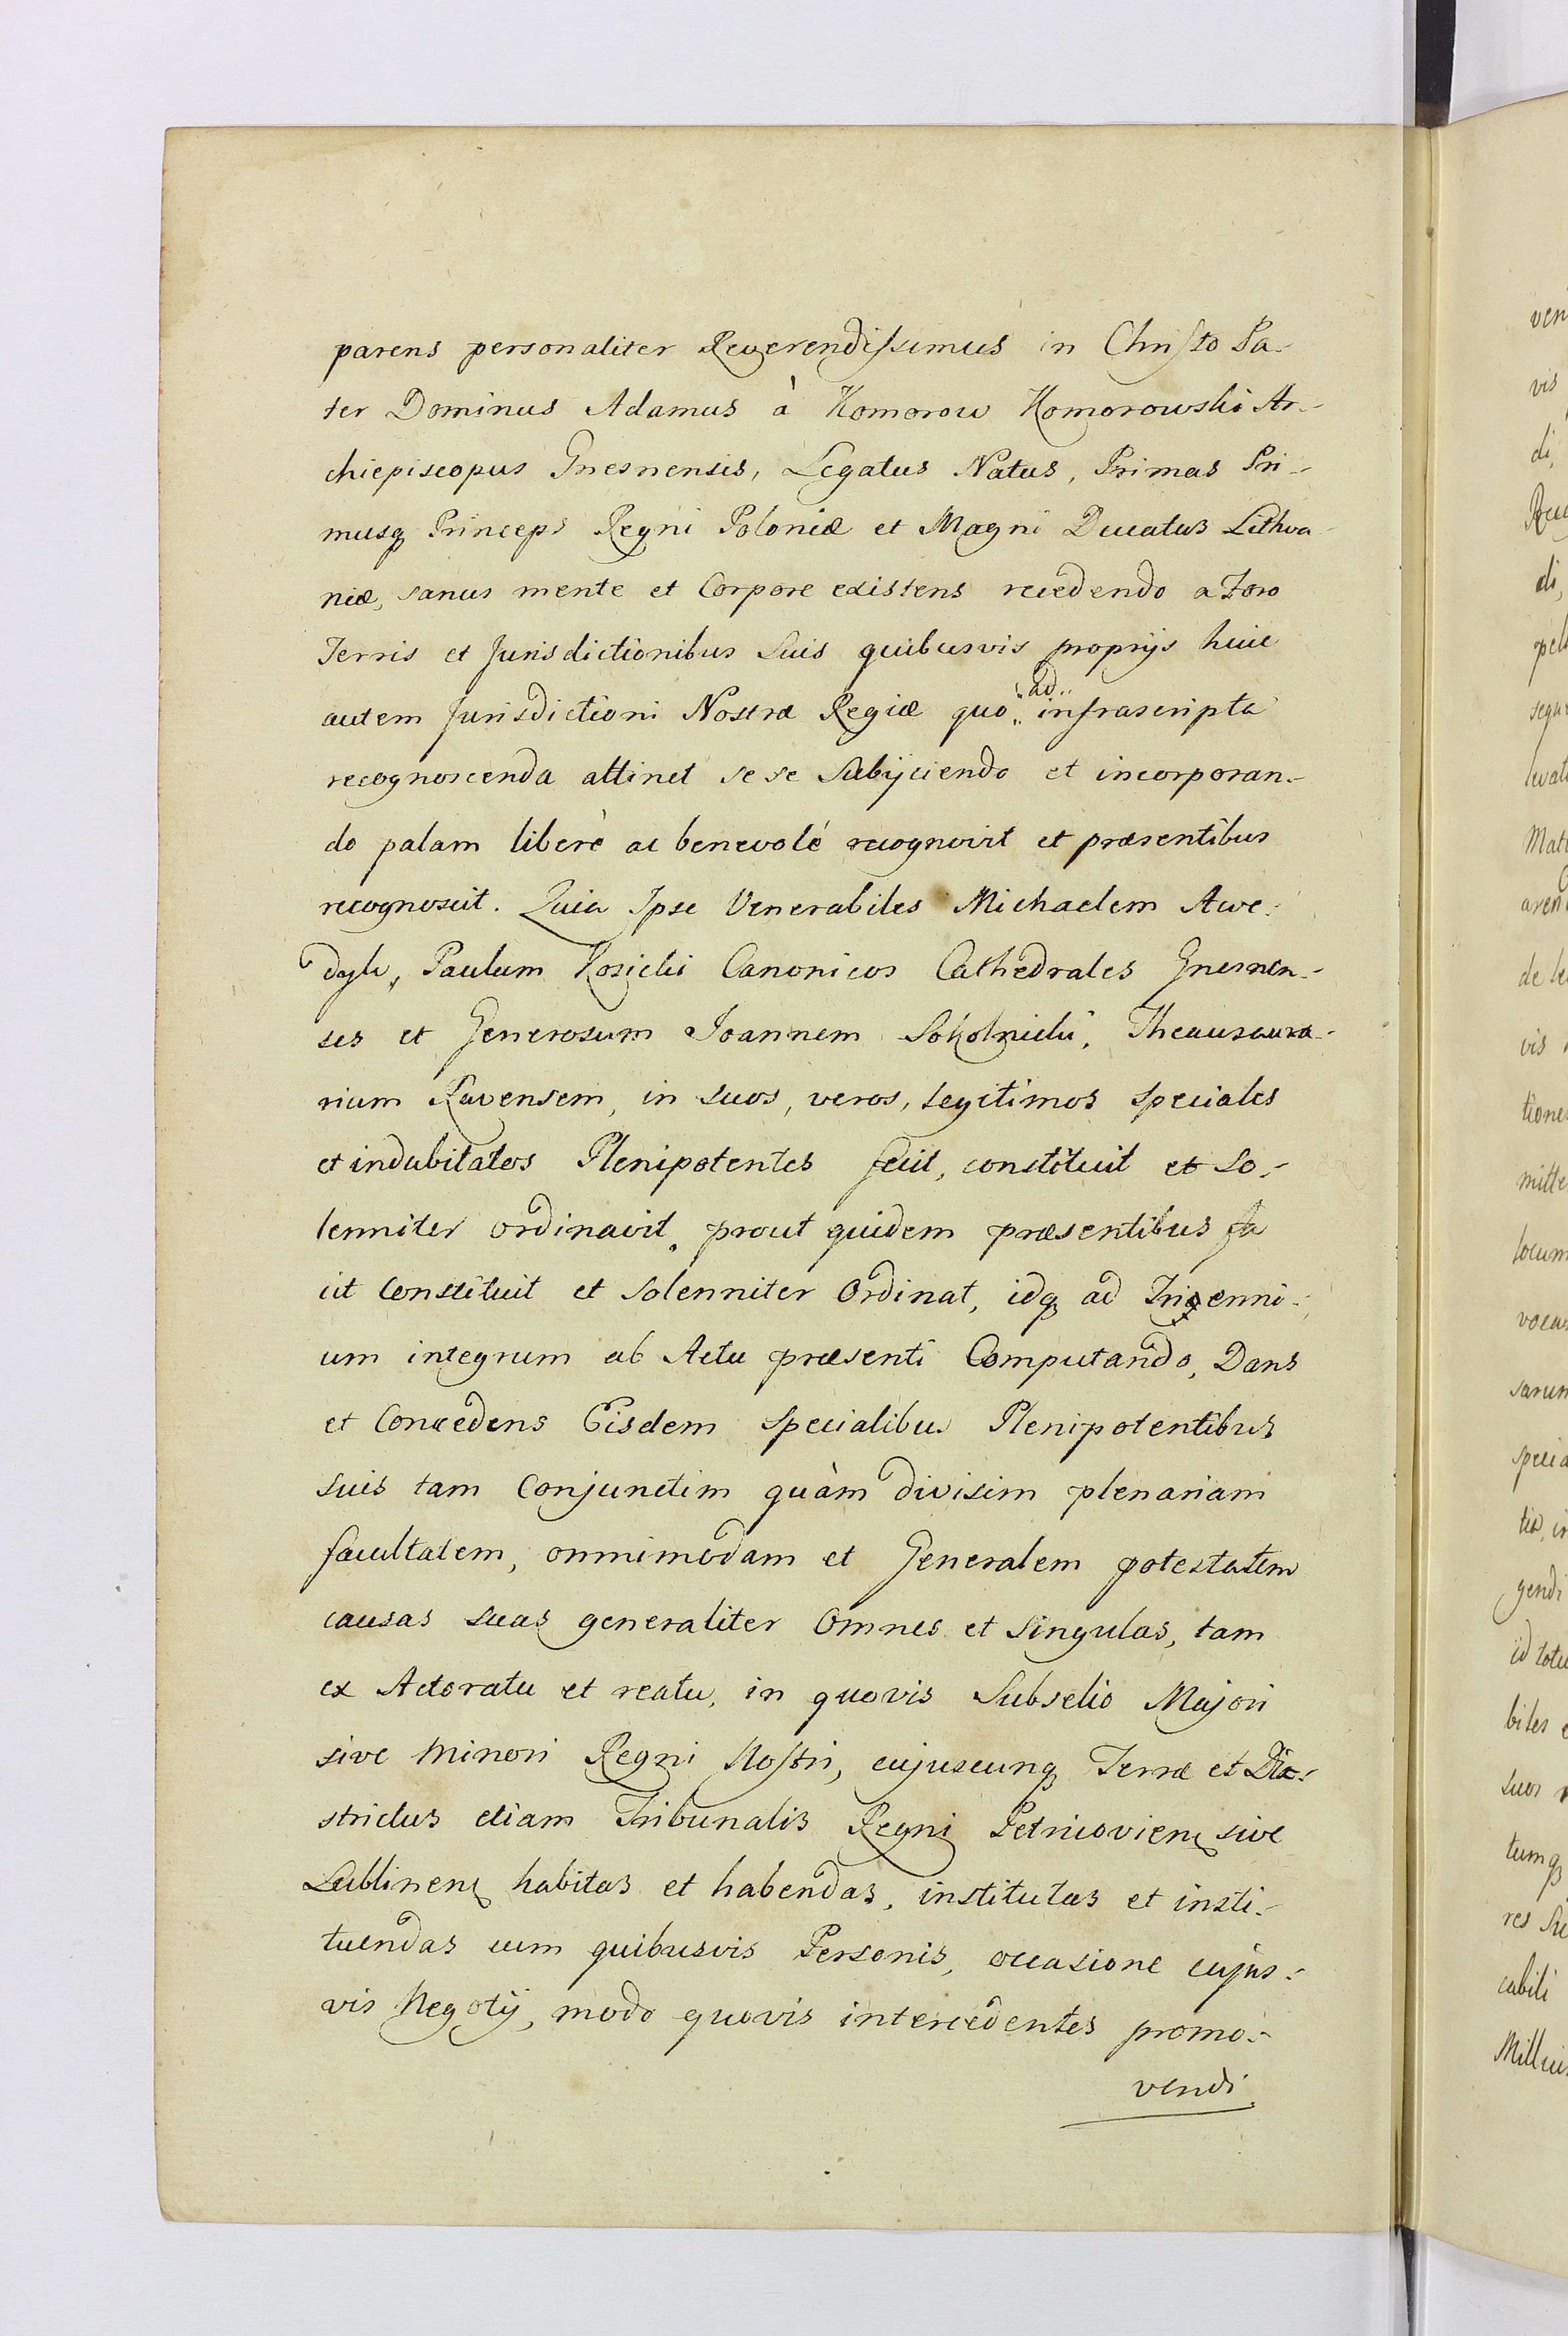 parens personaliter Reverendissimus in Christo Pa-
ter Dominus Adamus à Komorow Komorowski Ar-
chiepiscopus Gnesnensis, Legatus Natus, Primas Pri-
musq Princeps Regni Poloniæ et Magni Ducatus Lithva
niæ, sanus mente et Corpore existens recedendo a Foro
Terris et Jurisdictionibus Suis quibusvis proprijs huic
autem Jurisdictioni Nostræ Regiæ quo ad infrascripta
recognoscenda attinet se se Subijciendo et incorporan-
do palam liberè ac benevolé recognovit et præsentibus
recognoscit. Quia Ipse Venerabiles Michaelem Awe-
dyk, Paulum Kosicki Canonicos Cathedrales Gnesnen-
ses et Generosum Joannem Sokolnicki, Theausaura-
rium Ravensem, in suos, veros, legitimos speciales
et indubitatos Plenipotentes fecit, constituit et So-
lenniter ordinavit, prout quidem præsentibus fa
cit Constituit et Solenniter Ordinat, idq ad Trigenni-
um integrum ab Actu præsenti Computando, Dans
et Concedens Eisdem Specialibus Plenipotentibus
suis tam Conjunctim quàm divisim plenariam
facultatem, omnimodam et Generalem potestatem
causas suas generaliter Omnes et Singulas, tam
ex Actoratu et reatu, in quovis Subselio Majori
sive Minori Regni Nostri, cujuscunq Terræ et Di-
strictus etiam Tribunalis Regni Petricovien sive
Lublinen habitas et habendas, institutas et insti-
tuendas cum quibusvis Personis, occasione cujus-
vis Negotij, modo quovis intercedentes promo-
vendi